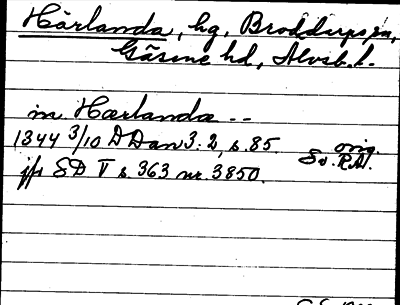 Härlanda, hg, Broddarps sn,
Gäsene hd, Älvsb. l.
in Hærlanda --
1344 3/10 DDan 3:2, s. 85. orig.
Sv. RA.
jfr SD V s. 363 nr. 3850.